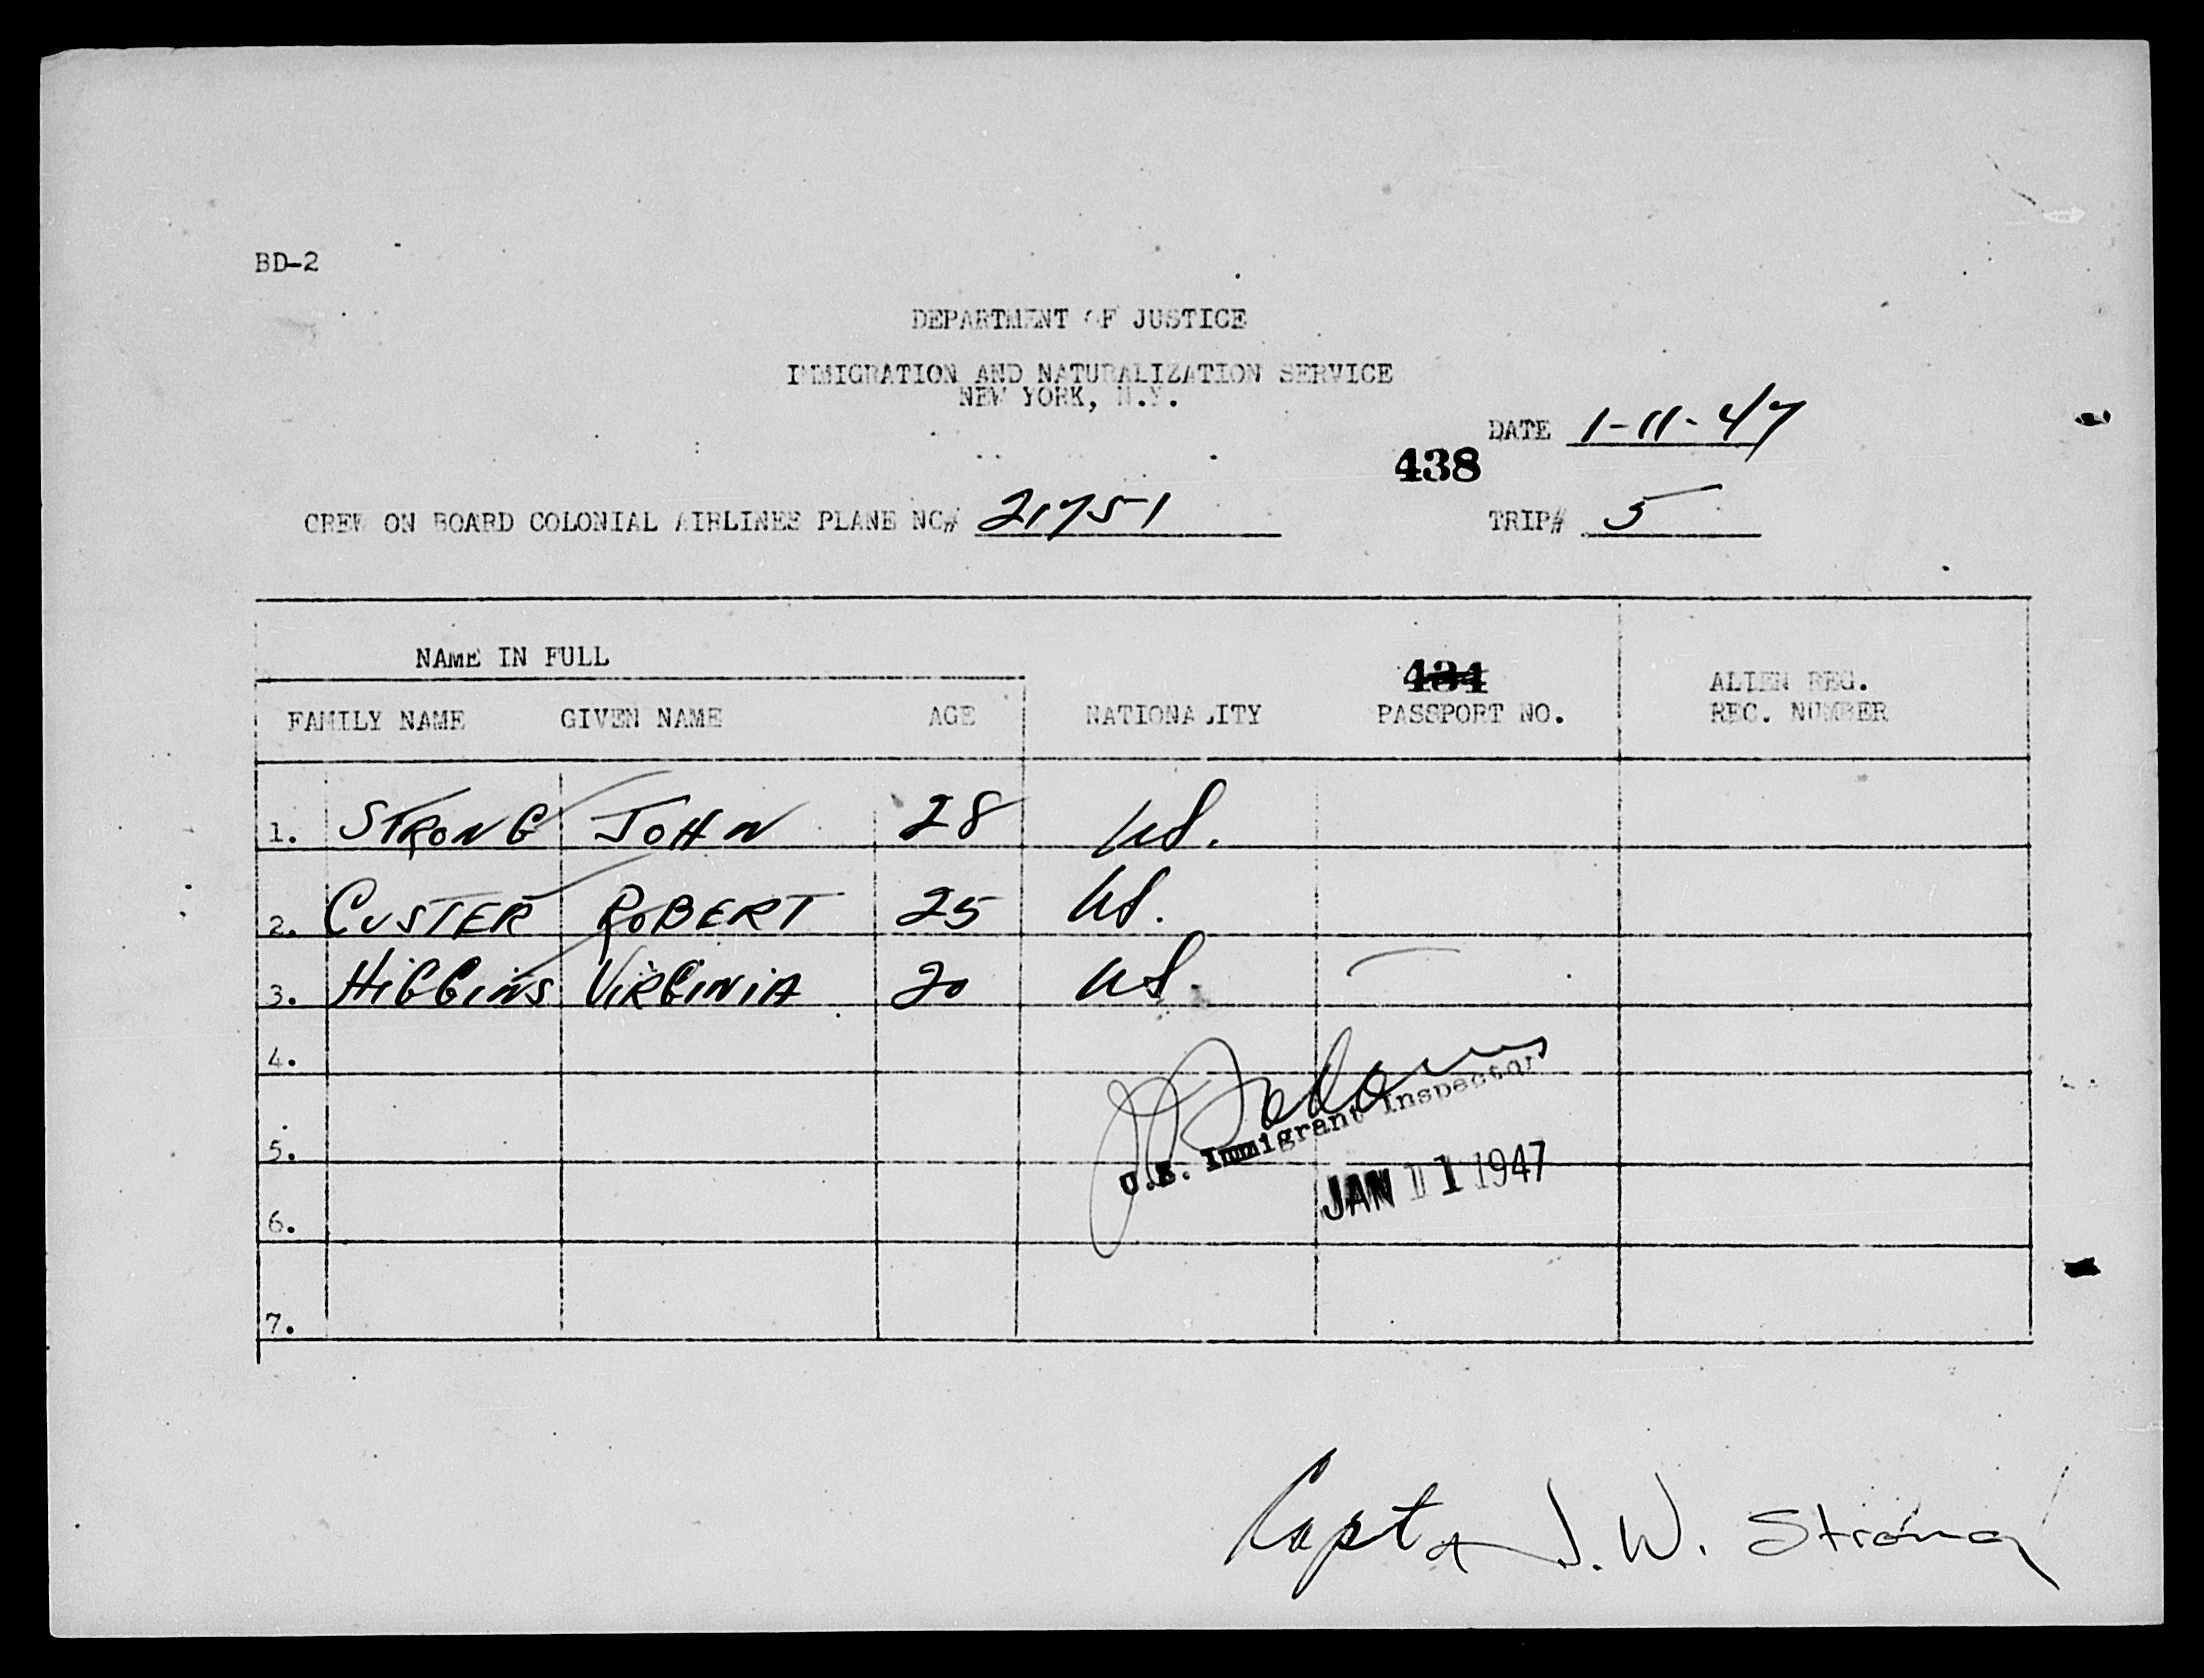 BD-2
DEPARTMENT OF JUSTICE
IMMIGRATION AND NATURALIZATION SERVICE
NEW YORK, N.Y.
DATE 1-11-47
438
CREW ON BOARD COLONIAL AIRLINES PLANE NO# 21751 TRIP# 5
NAME IN FULL
434
ALIEN REG.
FAMILY NAME GIVEN NAME AGE NATIONALITY PASSPORT NO. REC. NUMBER
1. STRONG JOHN 28 US.
2. CUSTER ROBERT 25 US.
3. HIGGINS VIRGINIA 20 US. —
4.
U.S. Immigrant Inspector
5.
JAN 11 1947
6.
7.
Capt J. W. Strong